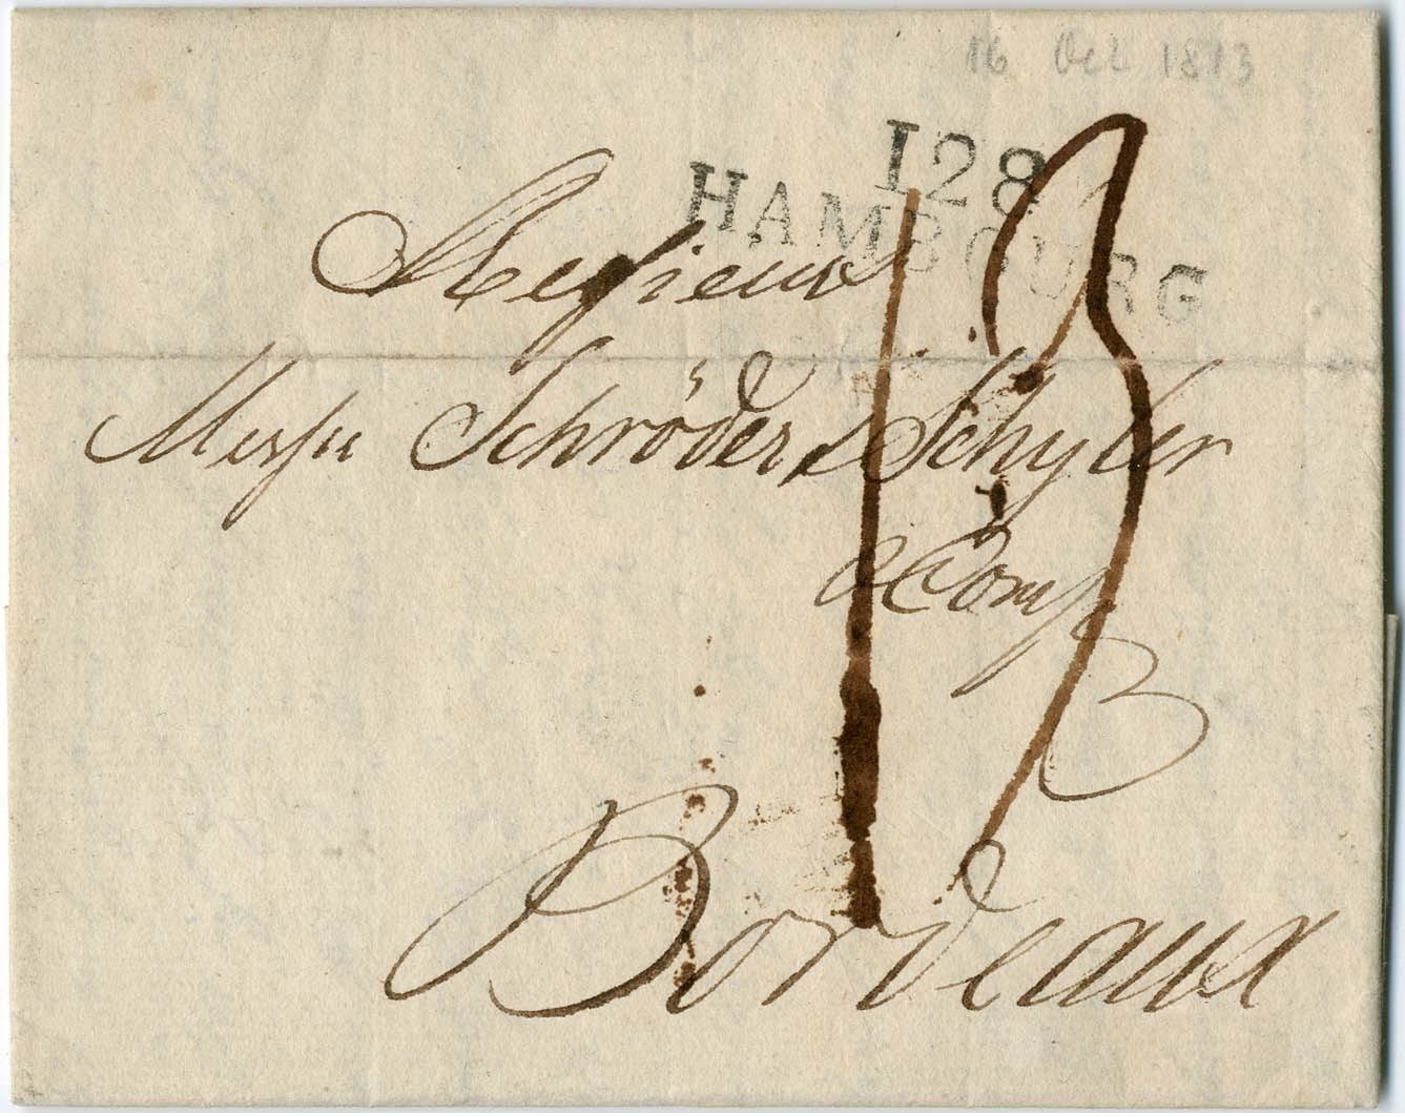 16 Oct 1813
128
HAMBOURG
Messieurs
Messrs Schröder & Schyler
& Comp
13
Bordeaux